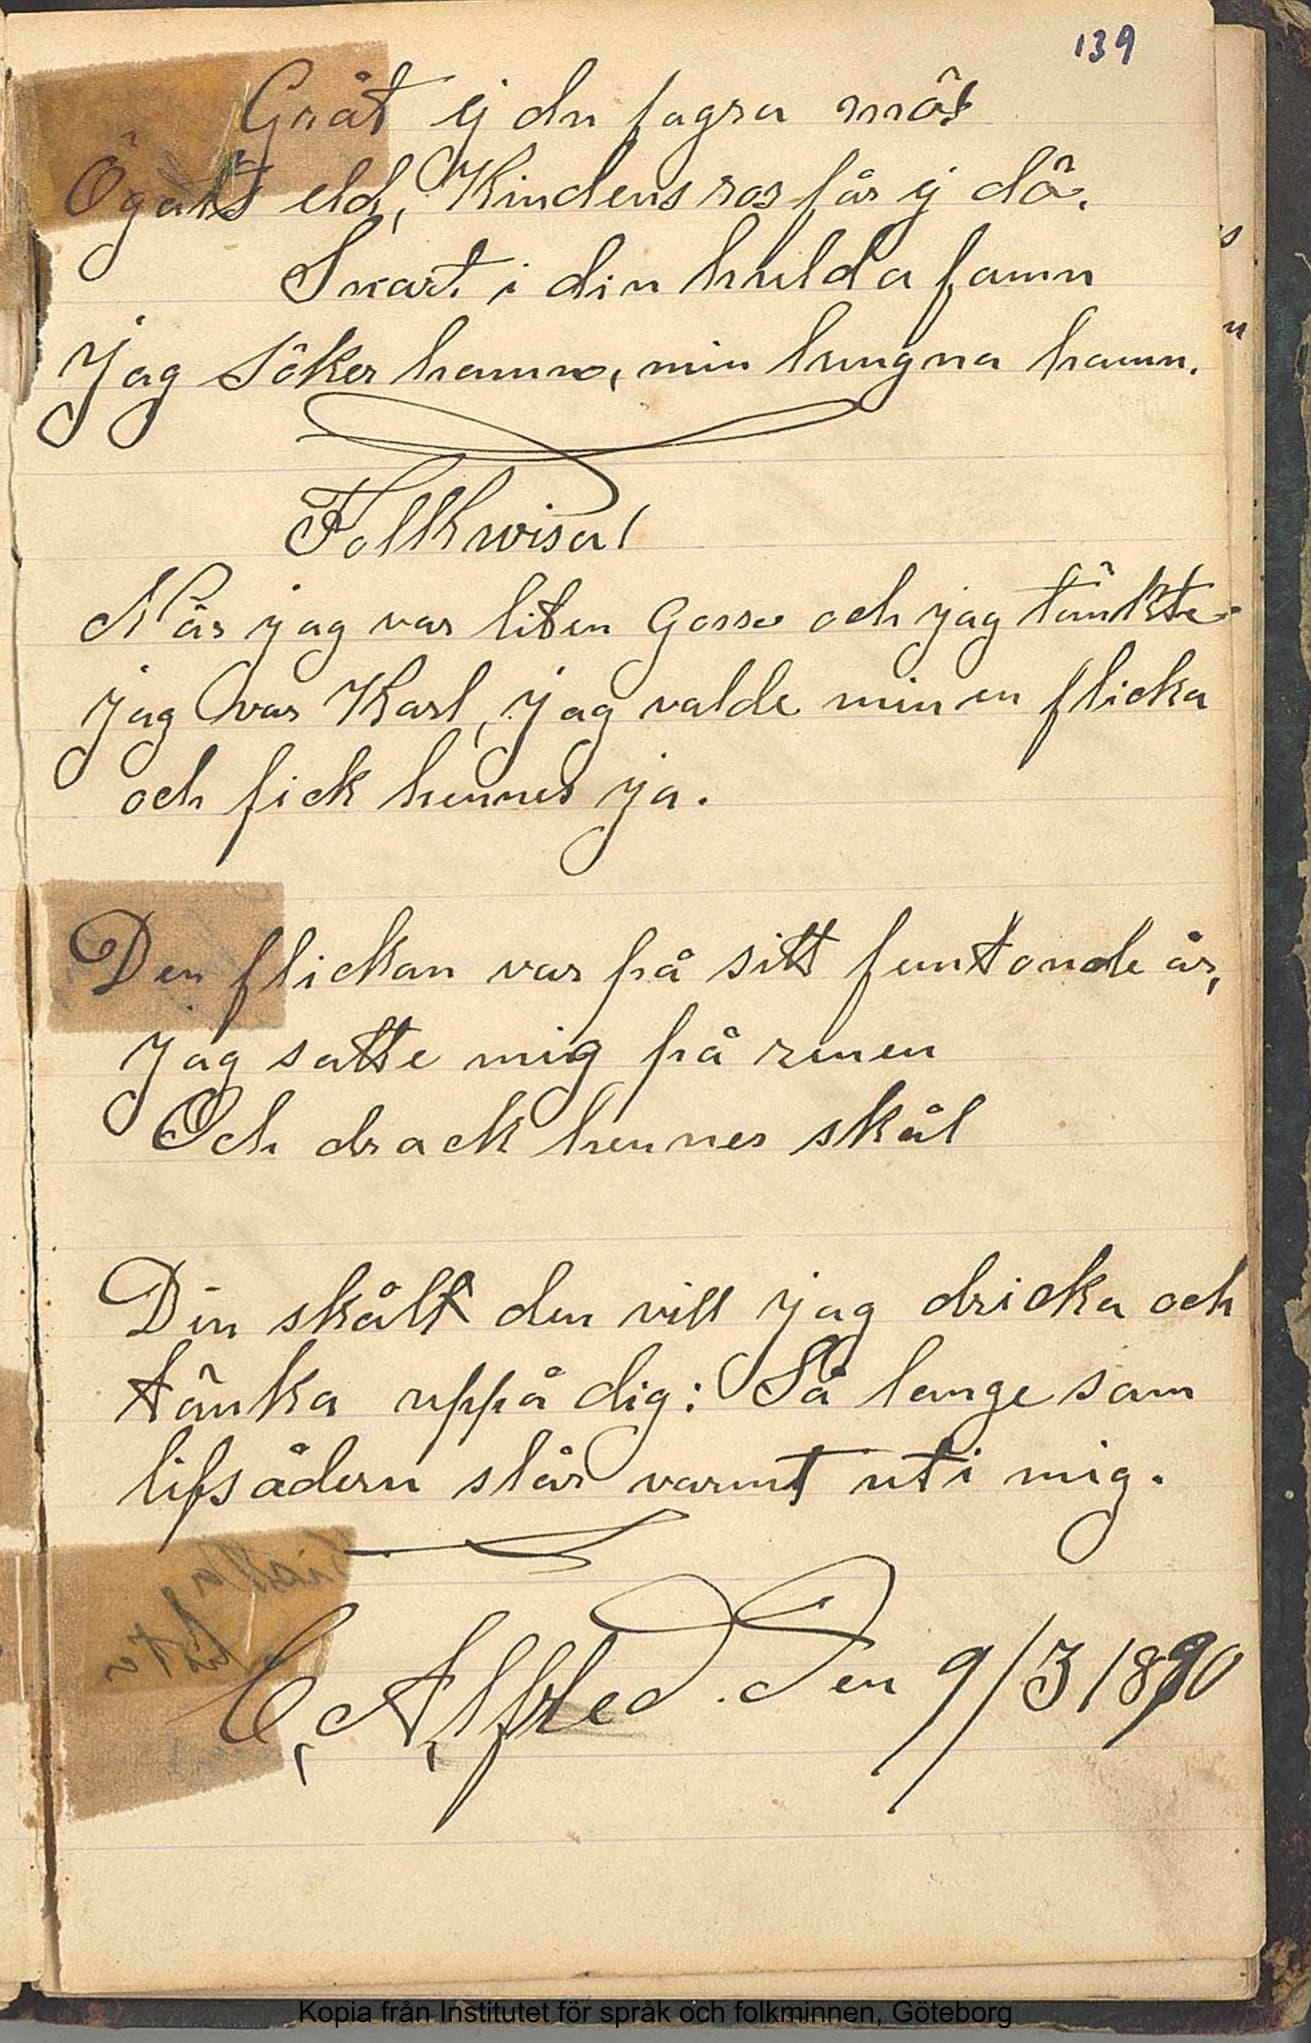 139
Gråt ej du fagra mö
Ögats eld, Kindens ros får ej dö.
Snart i din hulda famn
Jag söker hamn, min lungna hamn.
Folkwisa!
När jag var liten Gosse och jag tänkte
jag var Karl, jag valde min en flicka
och fick hennes ja.
Den flickan var på sitt femtonde år,
Jag satte mig på renen
Och drack hennes skål
Din skål den vill jag dricka och
tänka uppå dig: Så lenge som
lifsådern slår varmt uti mig.
C, A, Alfred. Den 9/3 1890
Kopia från Institutet för språk och folkminnen, Göteborg